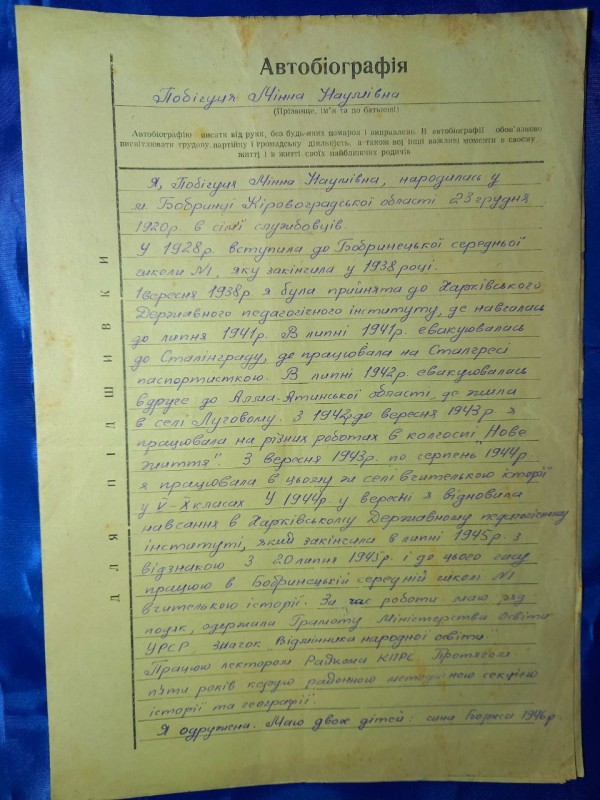 Автобіографія
Побігуця Мінна Наумівна
(Прізвище, ім'я та по батькові)
Автобіографію писати від руки, без будь-яких помарок і виправлень. В автобіографії обов'язково
висвітлювати трудову, партійну і громадську діяльність, а також всі інші важливі моменти в своєму
житті і в житті своїх найближчих родичів
ДЛЯ ПІДШИВКИ
Я, Побігуця Мінна Наумівна, народилась у
м. Бобринці Кіровоградської області 23 грудня
1920р. в сім'ї службовців.
У 1928р. вступила до Бобринецької середньої
школи №1, яку закінчила у 1938 році.
1 вересня 1938р. я була прийнята до Харківського
Державного педагогічного інституту, де навчалась
до липня 1941р. В липні 1941р. евакуювалась
до Сталінграду, де працювала на Сталгресі
паспортисткою. В липні 1942р. евакуювалась
вдруге до Алма-Атинської області, де жила
в селі Луговому. З 1942р. до вересня 1943р. я
працювала на різних роботах в колгоспі „Нове
життя". З вересня 1943р. по серпень 1944р.
я працювала в цьому ж селі вчителькою історії
у V-X класах. У 1944р. у вересні я відновила
навчання в Харківському Державному педагогічному
інституті, який закінчила в липні 1945р. з
відзнакою. З 20 липня 1945р. і до цього часу
працюю в Бобринецькій середній школі №1
вчителькою історії. За час роботи маю ряд
подяк, одержала Грамоту Міністерства Освіти
УРСР значок "Відмінника народної освіти"
Працюю лектором Райкома КПРС. Протягом
п'яти років керую районною методичною секцією
історії та географії.
Я одружена. Маю двох дітей: сина 1946р.